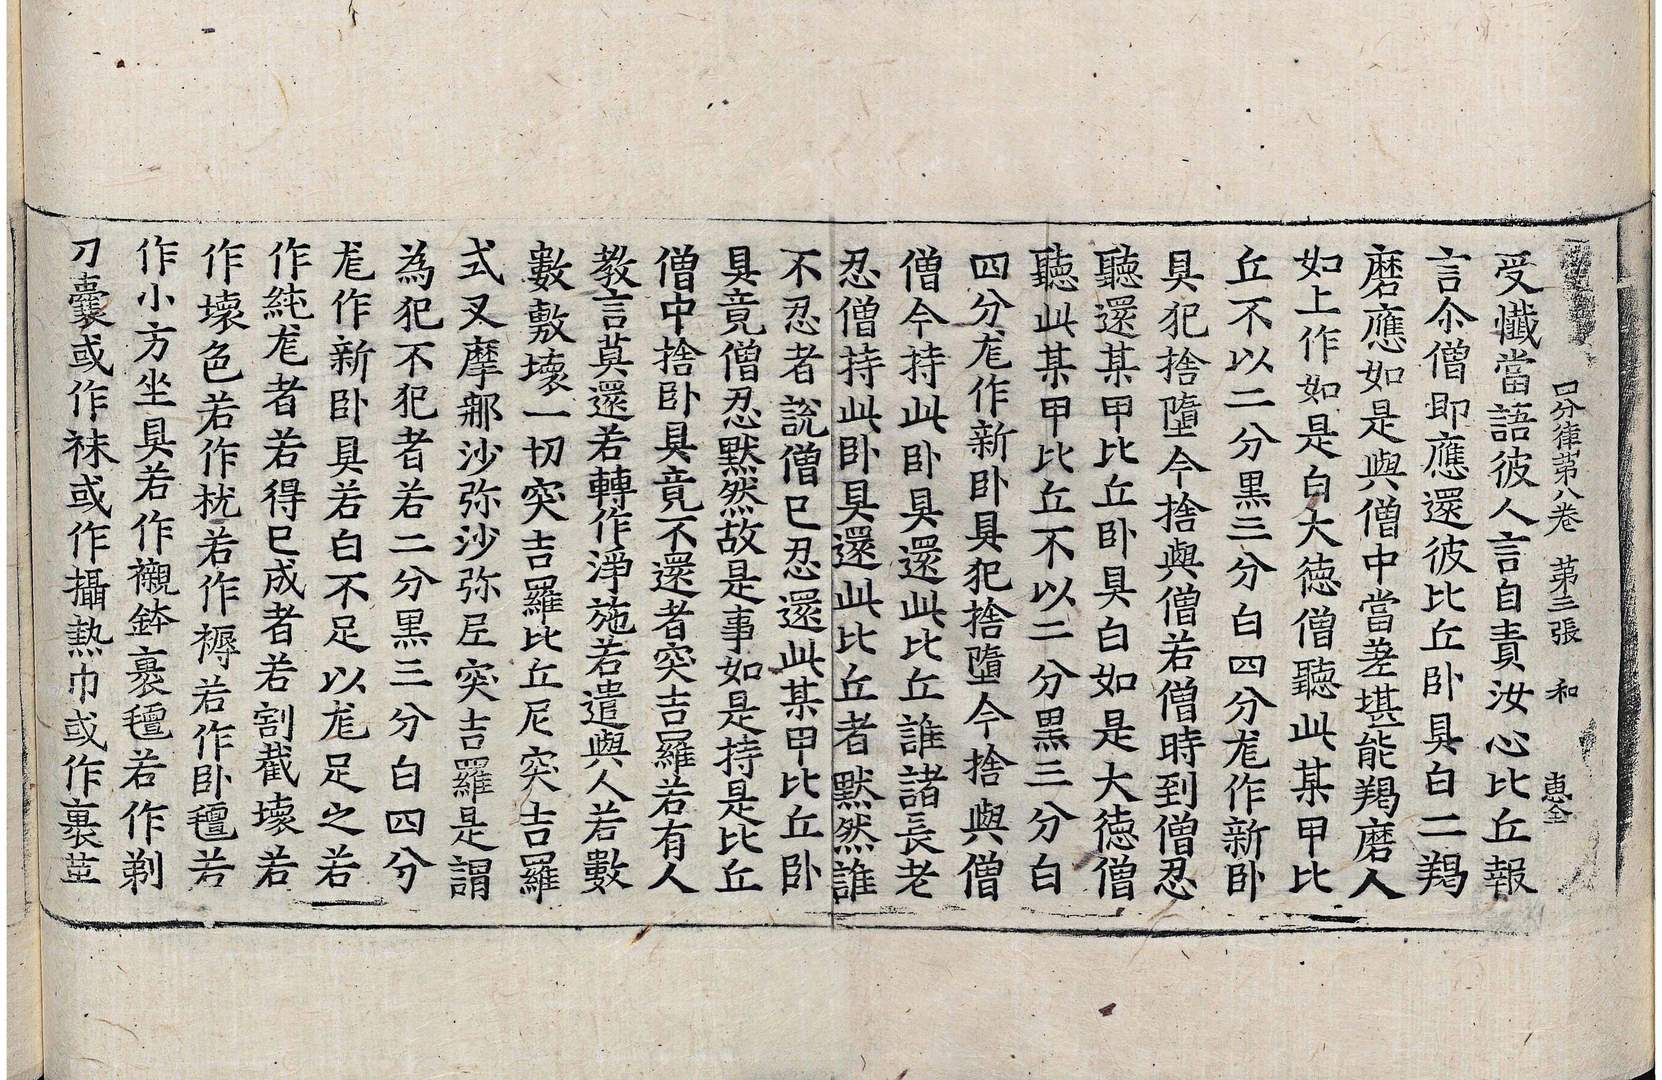 四分律第八卷　第三張　和　惠全
受懺當語彼人言自責汝心比丘報
言尒僧即應還彼比丘卧具白二羯
磨應如是與僧中當差堪能羯磨人
如上作如是白大德僧聽此某甲比
丘不以二分黑三分白四分尨作新卧
具犯捨墮今捨與僧若僧時到僧忍
聽還某甲比丘卧具白如是大德僧
聽此某甲比丘不以二分黑三分白
四分尨作新卧具犯捨墮今捨與僧
僧今持此卧具還此比丘誰諸長老
忍僧持此卧具還此比丘者默然誰
不忍者說僧已忍還此某甲比丘卧
具竟僧忍默然故是事如是持是比丘
僧中捨卧具竟不還者突吉羅若有人
教言莫還若轉作淨施若遣與人若數
數敷壞一切突吉羅比丘尼突吉羅
式叉摩那沙弥沙弥尼突吉羅是謂
為犯不犯者若二分黑三分白四分
尨作新卧具若白不足以尨足之若
作純尨者若得已成者若割截壞若
作壞色若作枕若作褥若作卧氊若
作小方坐具若作襯鉢裹氊若作剃
刀囊或作袜或作攝熱巾或作裹革